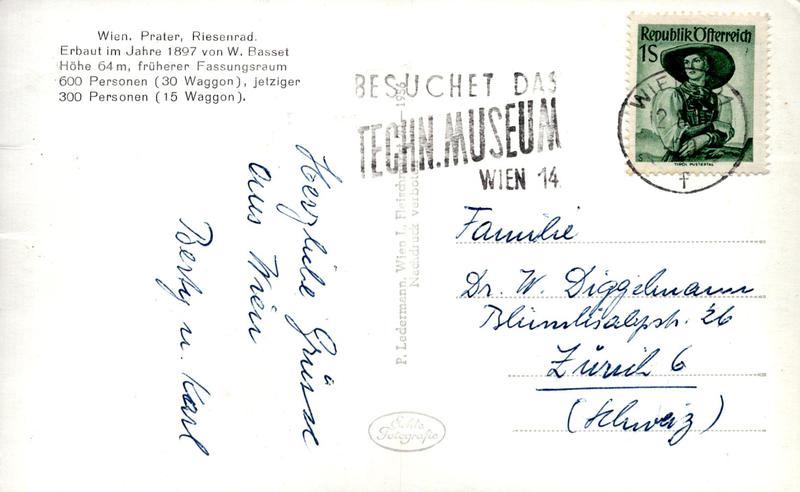 Wien. Prater, Riesenrad.
Erbaut im Jahre 1897 von W. Basset
Höhe 64 m, früherer Fassungsraum
600 Personen (30 Waggon), jetziger
300 Personen (15 Waggon).
BESUCHET DAS
TECHN. MUSEUM
WIEN 14
Republik Österreich
1S
TIROL PUSTERTAL
WIEN
Herzliche Grüsse
aus Wien
Berty u. Karl
P. Ledermann, Wien I., Fleischm
Nachdruck verboten
1956
Echte
Fotografie
Familie
Dr. W. Diggelmann
Blümlisalpstr. 26
Zürich 6
(Schweiz)